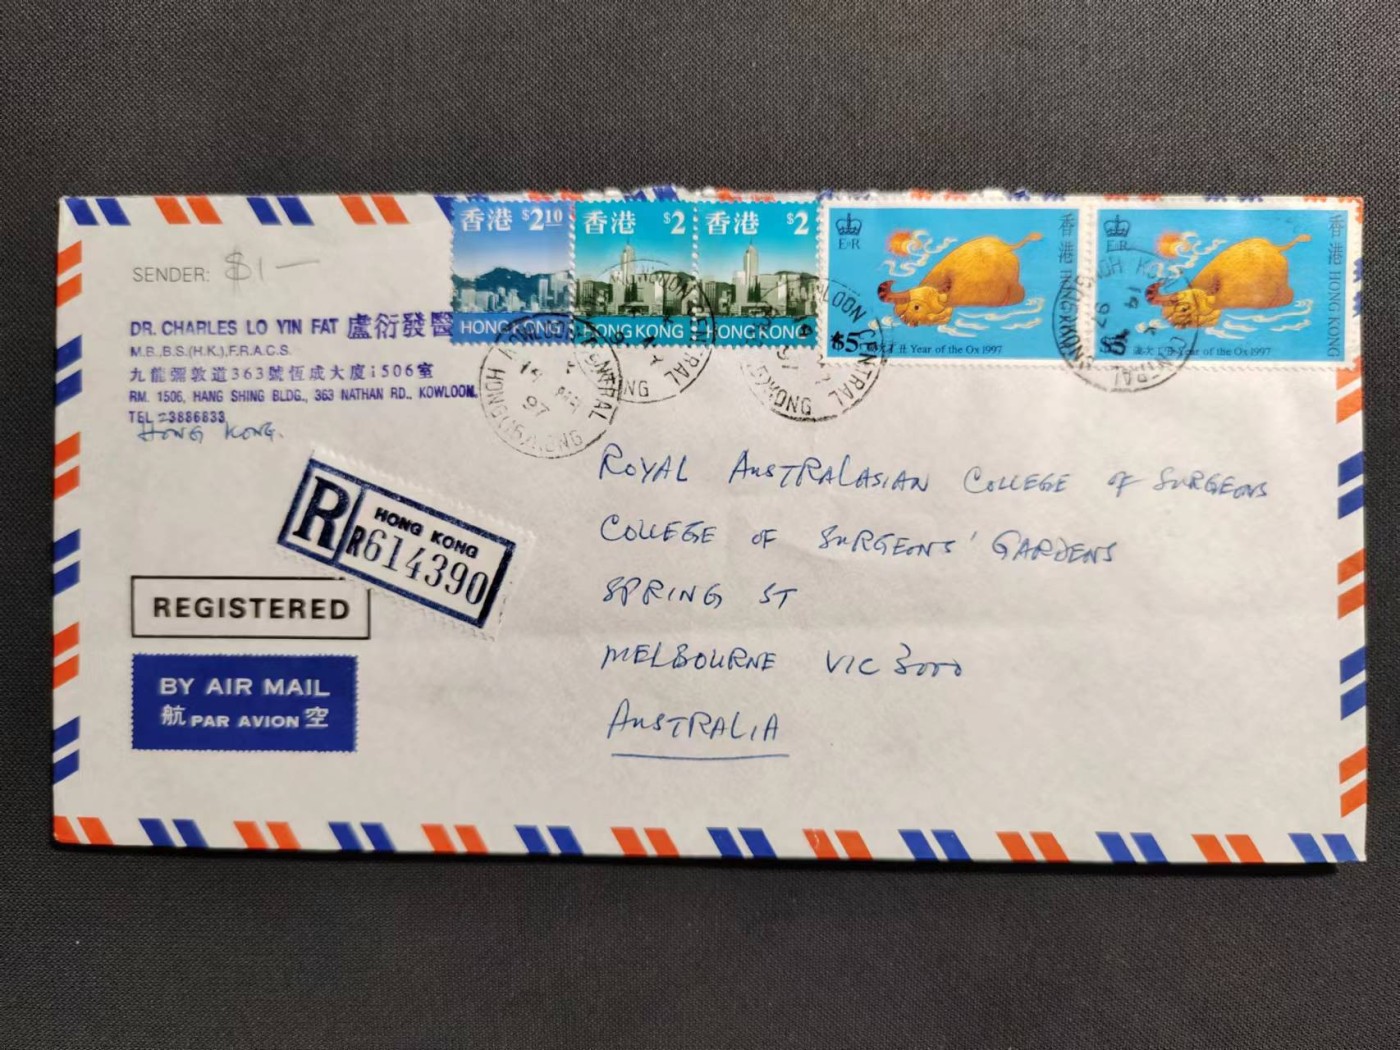 SENDER: $1—
DR. CHARLES LO YIN FAT 盧衍發醫
M.B.,B.S.(H.K.),F.R.A.C.S.
九龍彌敦道363號恆成大廈1506室
RM. 1506, HANG SHING BLDG., 363 NATHAN RD., KOWLOON.
TEL 23886833
HONG KONG.
香港 $2.10
HONG KONG
香港 $2
HONG KONG
香港 $2
HONG KONG
E II R
香港 HONG KONG
$5 歲次丁丑 Year of the Ox 1997
E II R
香港 HONG KONG
$5 歲次丁丑 Year of the Ox 1997
KOWLOON CENTRAL
97
HONG KONG
R HONG KONG
R614390
REGISTERED
BY AIR MAIL
航 PAR AVION 空
ROYAL AUSTRALASIAN COLLEGE OF SURGEONS
COLLEGE OF SURGEONS' GARDENS
SPRING ST
MELBOURNE VIC 3000
AUSTRALIA